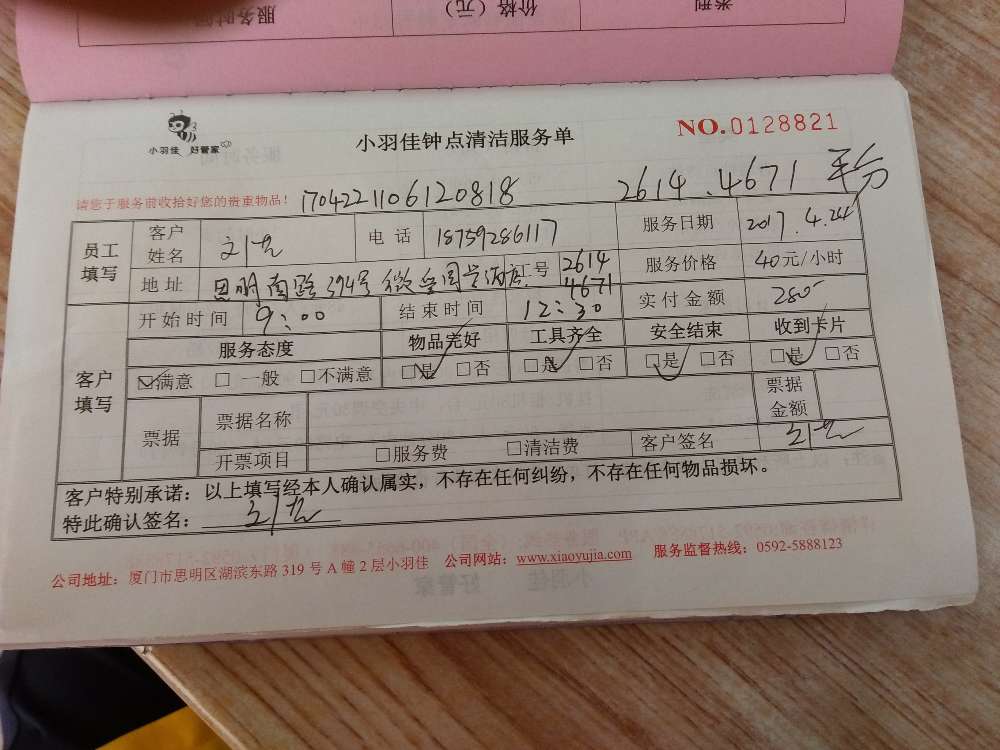 类别
价格（元）
服务时间
小羽佳 好管家
小羽佳钟点清洁服务单
NO.0128821
请您于服务前收拾好您的贵重物品！ 1704221106120818 2614.4671 平分
员工填写 客户姓名 电话 18759286117 服务日期 2017.4.24
地址 思明南路394号 工号 2614 4671 服务价格 40元/小时
开始时间 9:00 结束时间 12:30 实付金额 280
客户填写 服务态度 物品完好 工具齐全 安全结束 收到卡片
☑满意 □一般 □不满意 ☑是 □否 ☑是 □否 ☑是 □否 ☑是 □否
票据 票据名称 票据金额
开票项目 □服务费 □清洁费 客户签名
客户特别承诺：以上填写经本人确认属实，不存在任何纠纷，不存在任何物品损坏。
特此确认签名：
公司地址：厦门市思明区湖滨东路 319 号 A 幢 2 层小羽佳 公司网站：www.xiaoyujia.com 服务监督热线：0592-5888123